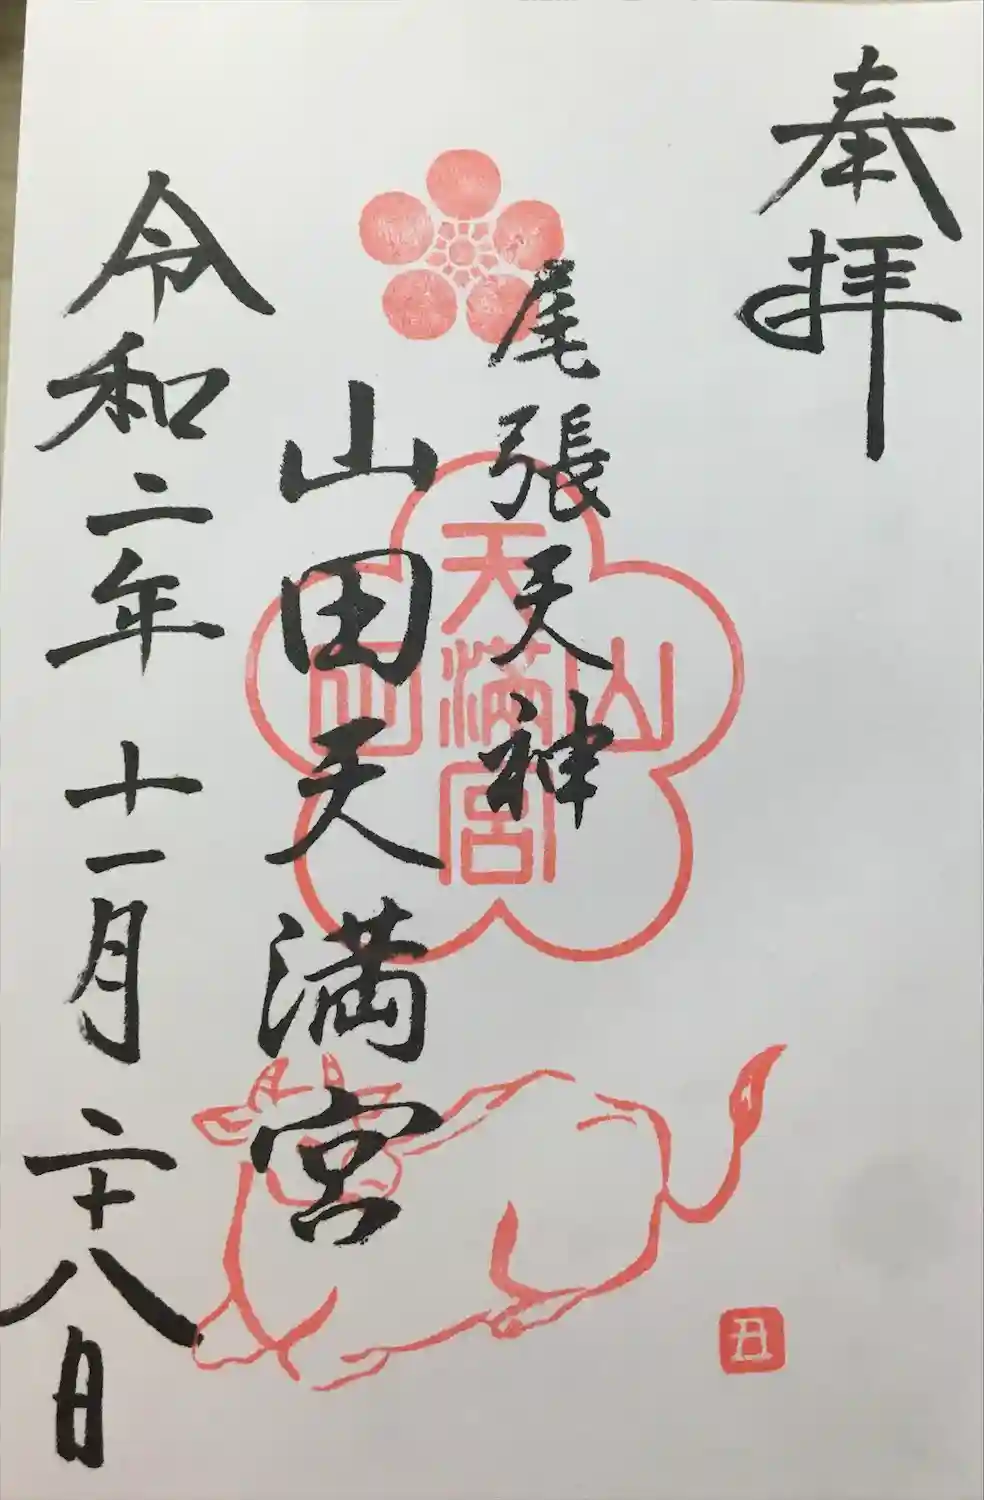 奉拝
尾張天神
山田天満宮
令和二年十一月二十八日
天
山満田
宮
丑